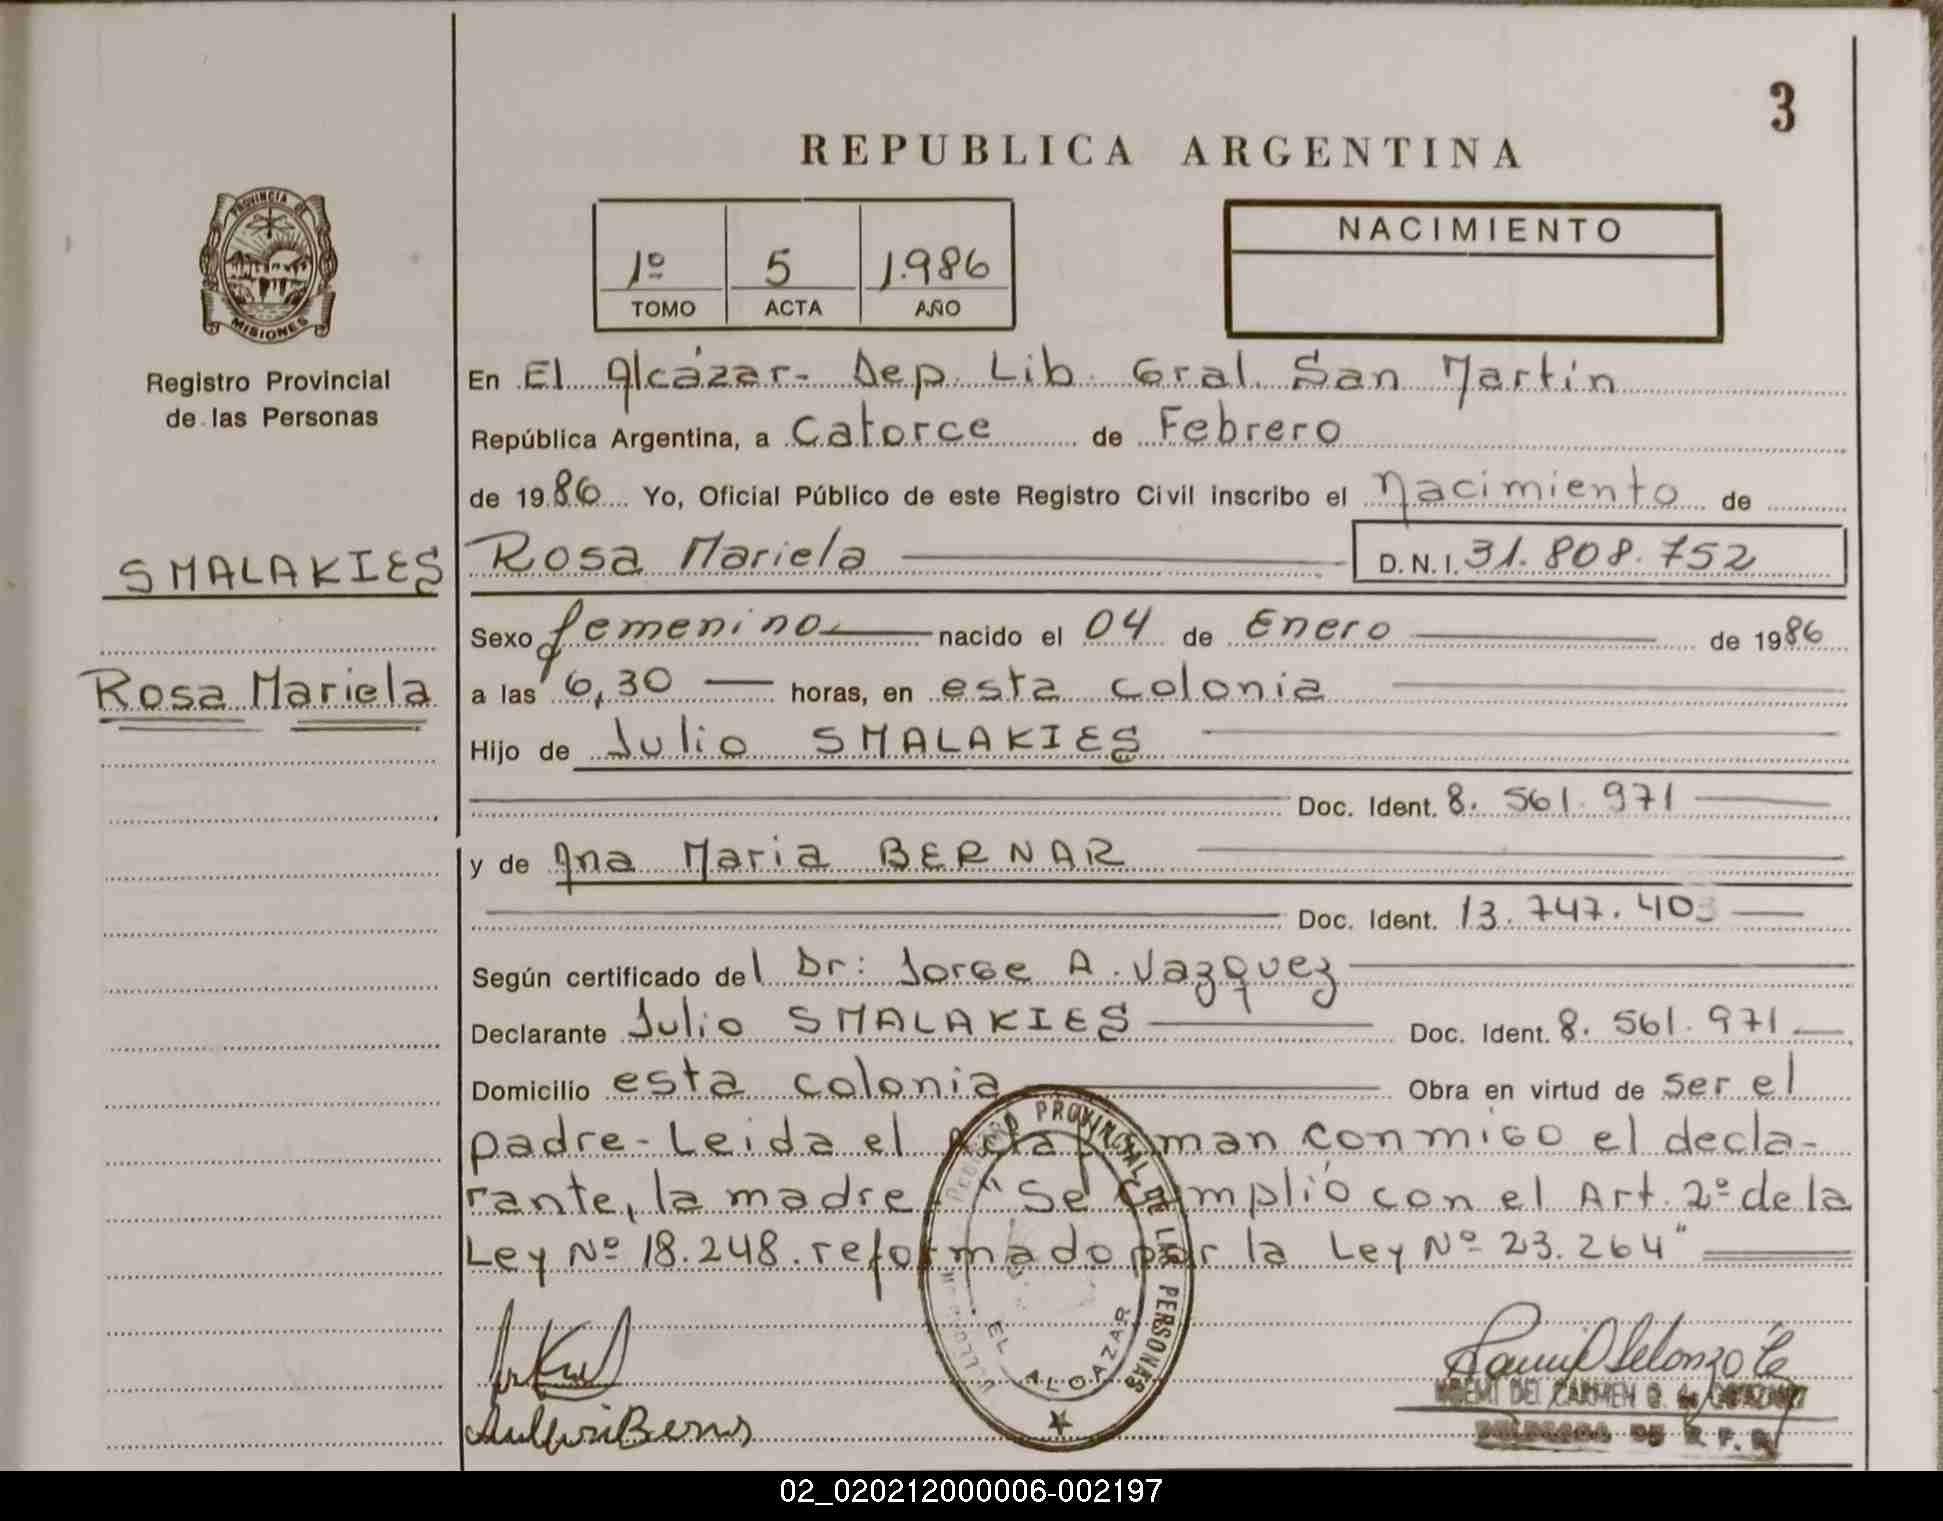 3
REPUBLICA ARGENTINA
PROVINCIA DE
MISIONES
Registro Provincial
de las Personas
1º 5 1.986
TOMO ACTA AÑO
NACIMIENTO
En El Alcázar- Dep. Lib. Gral. San Martín
República Argentina, a Catorce de Febrero
de 1986 Yo, Oficial Público de este Registro Civil inscribo el Nacimiento de
SMALAKIES
Rosa Mariela
Rosa Mariela D.N.I. 31.808.752
Sexo femenino nacido el 04 de Enero de 1986
a las 6,30 horas, en esta colonia
Hijo de Julio SMALAKIES
Doc. Ident. 8.561.971
y de Ana Maria BERNAR
Doc. Ident. 13.747.403
Según certificado del Dr: Jorge A. Vazquez
Declarante Julio SMALAKIES Doc. Ident. 8.561.971
Domicilio esta colonia Obra en virtud de ser el
padre-Leida el Acta firman conmigo el decla-
rante, la madre. "Se cumplió con el Art. 2º de la
Ley Nº 18.248. reformado por la Ley Nº 23.264"
REGISTRO PROVINCIAL DE LAS PERSONAS
EL ALCAZAR
NOEMI DEL CARMEN G. de
DELEGADA DE R. P. P.
02_020212000006-002197